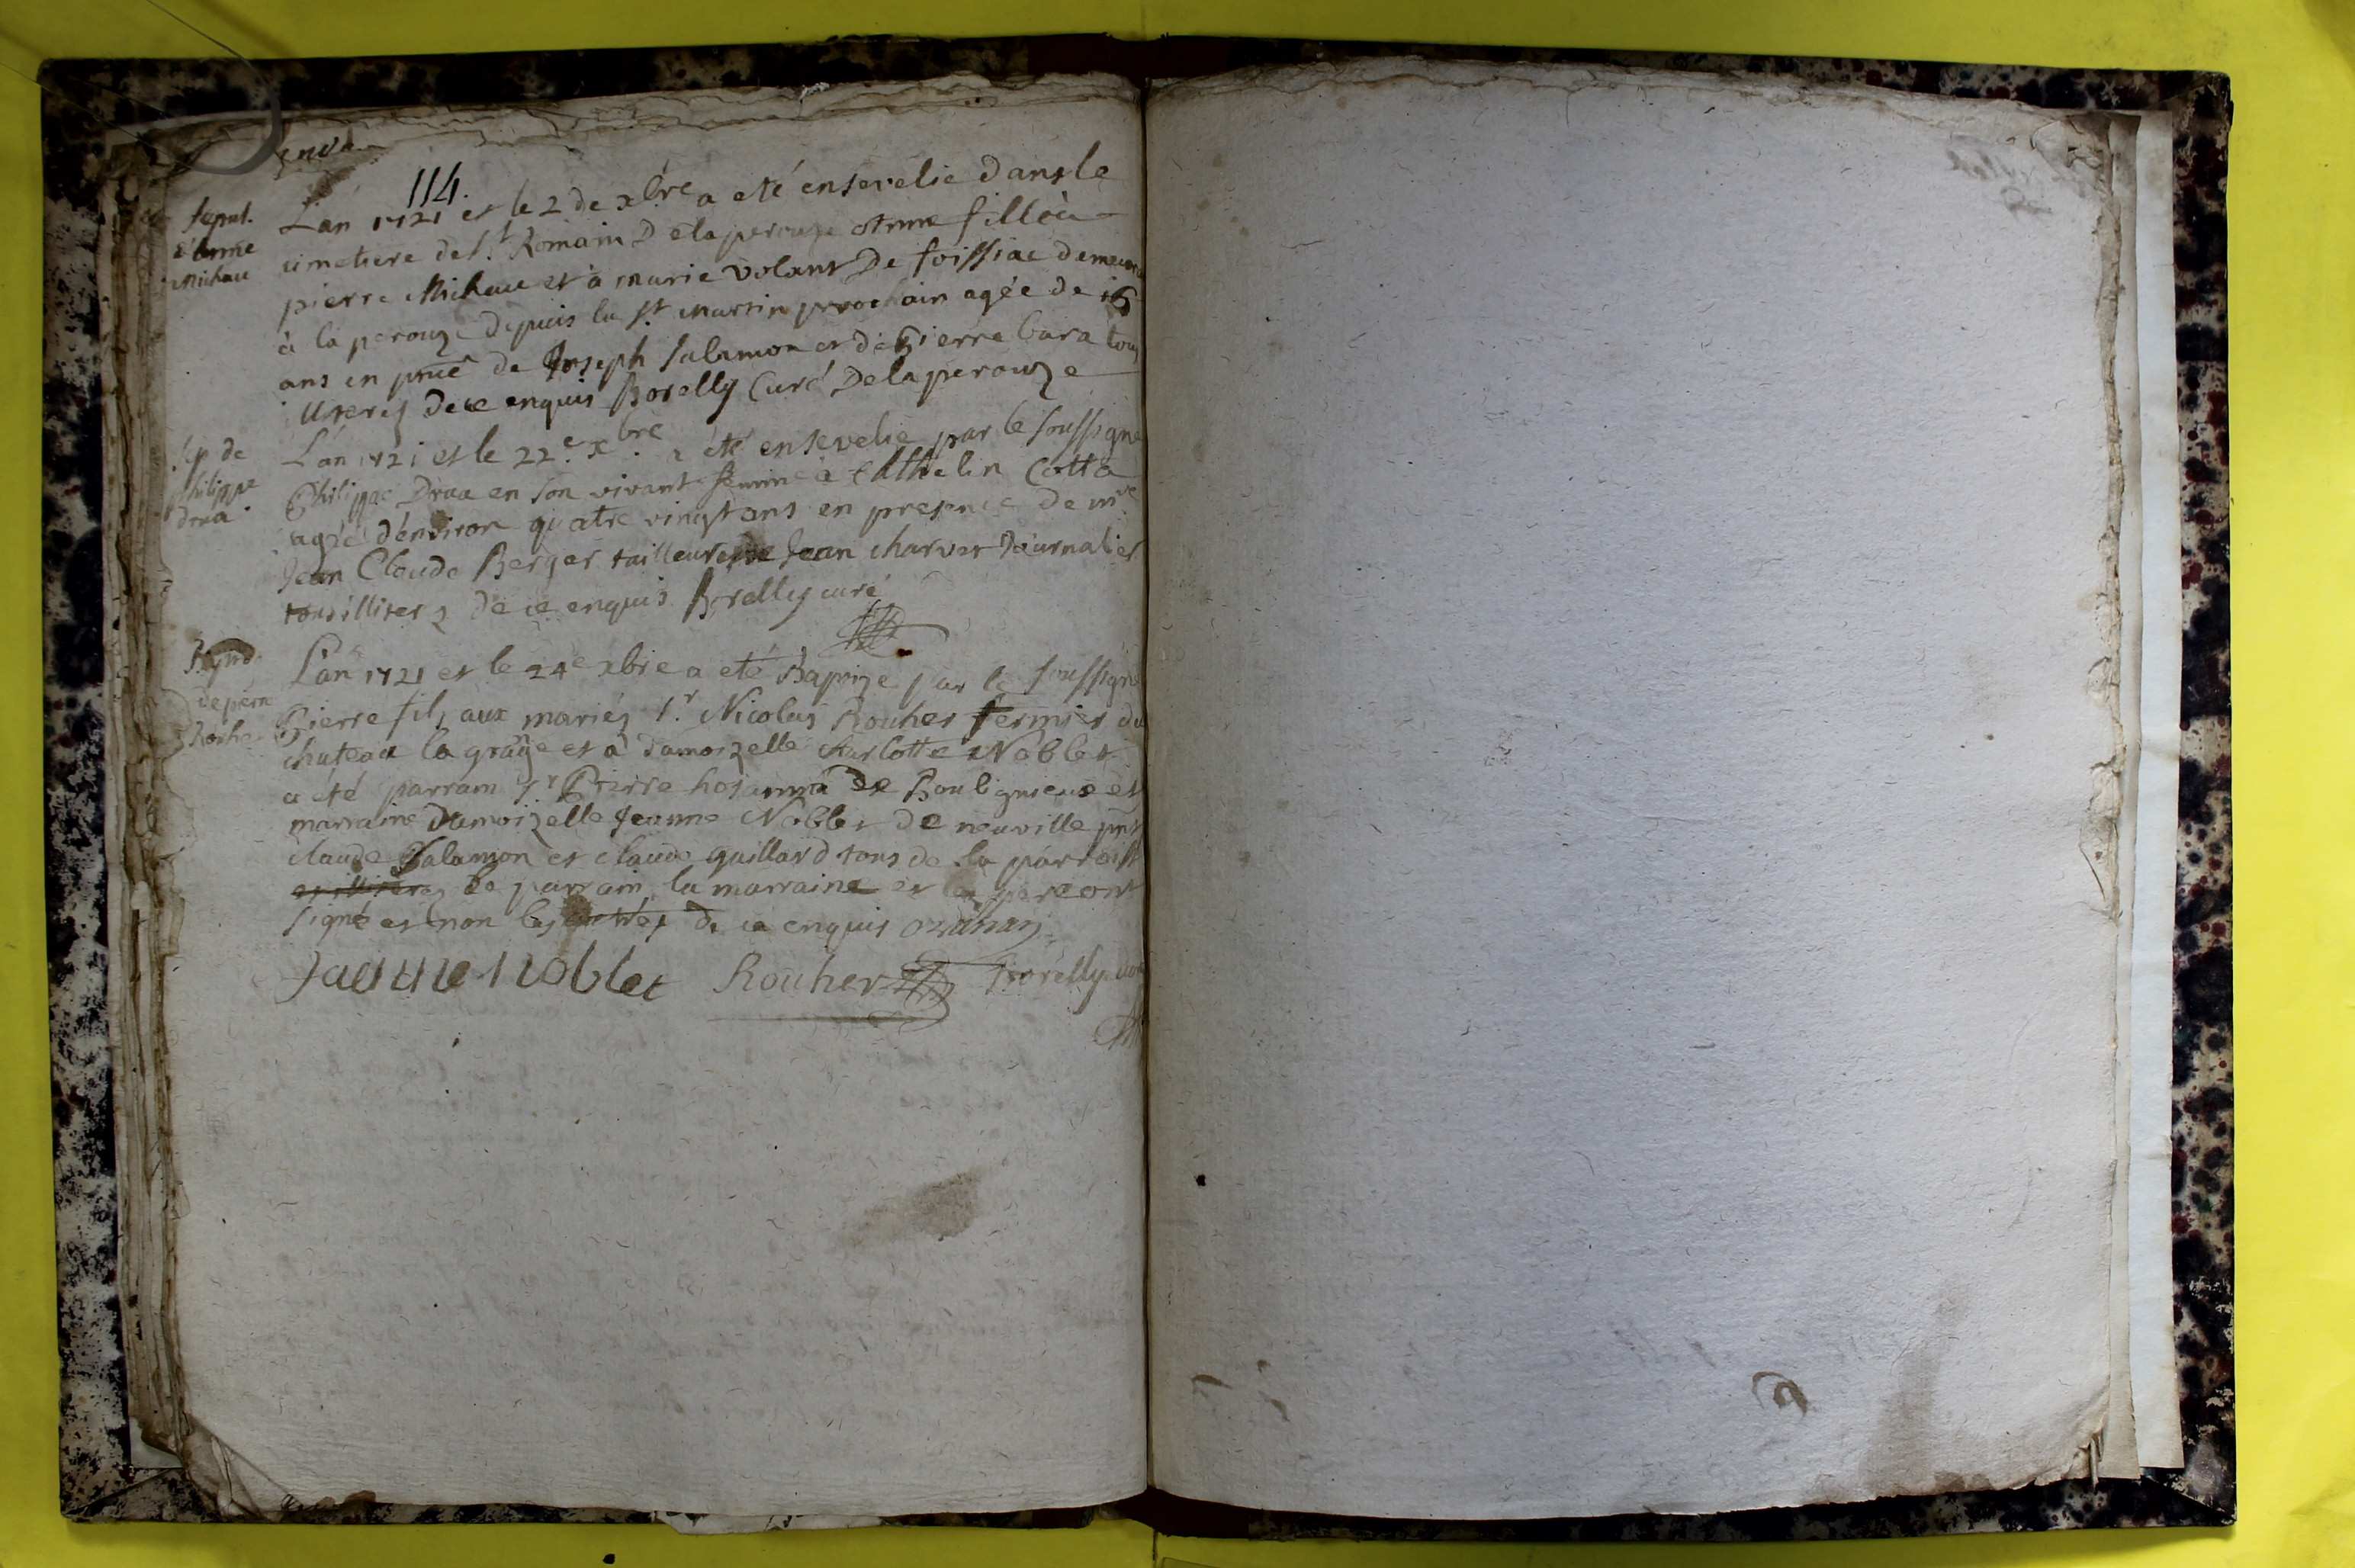 114.
sepul.
d'anne
Michau
L'an 1721 et le 2 de xbre a eté ensevelie dans le
cimetiere de St. Romain De la perouze Anne fille à
pierre Michau et à marie volant De foissiac demeurant
à la perouze depuis la st martin prochain agée de 16
ans en pnce de Joseph salamon et de pierre bara tous
illiterez de ce enquis Borelly Curé De la perouze
sep de
philippe
drua
L'an 1721 et le 22e xbre a été ensevelie par le soussigné
Philippe Drua en son vivant femme à Cathelin Cotta
agée d'environ quatre vingt ans en presence de
Jean Claude Berger tailleur et de Jean charvet Journalier
tous illiterz de ce enquis Borelly curé
L'an 1721 et le 24e xbre a eté Baptize par le soussigné
Pierre fils aux mariés Sr. Nicolas Rouher fermier du
chateau la grange et à damoizelle Charlotte Noblet
a été parrain Sr Pierre de Bouligneux et
marraine Damoizelle Jeanne Noblet de neuville pnt
claude Salamon et claude guillard tous de la parroisse
et illiterez le parrain la marraine et le pere ont
signé et non les autres de ce enquis
Noblet Rouher Borelly curé